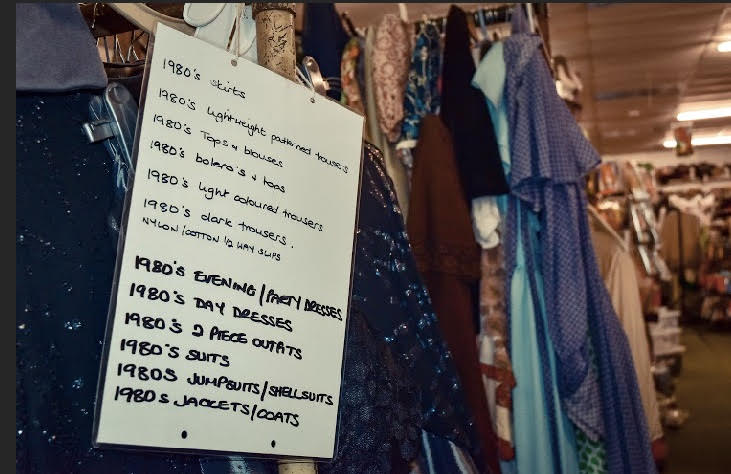 1980's skirts
1980's lightweight patterned trousers
1980's Tops & blouses
1980's bolero's & tops
1980's light coloured trousers
1980's dark trousers.
NYLON/COTTON 1/2 WAY SLIPS
1980's EVENING/PARTY DRESSES
1980's DAY DRESSES
1980's 2 PIECE OUTFITS
1980's SUITS
1980s JUMPSUITS/SHELLSUITS
1980s JACKETS/COATS